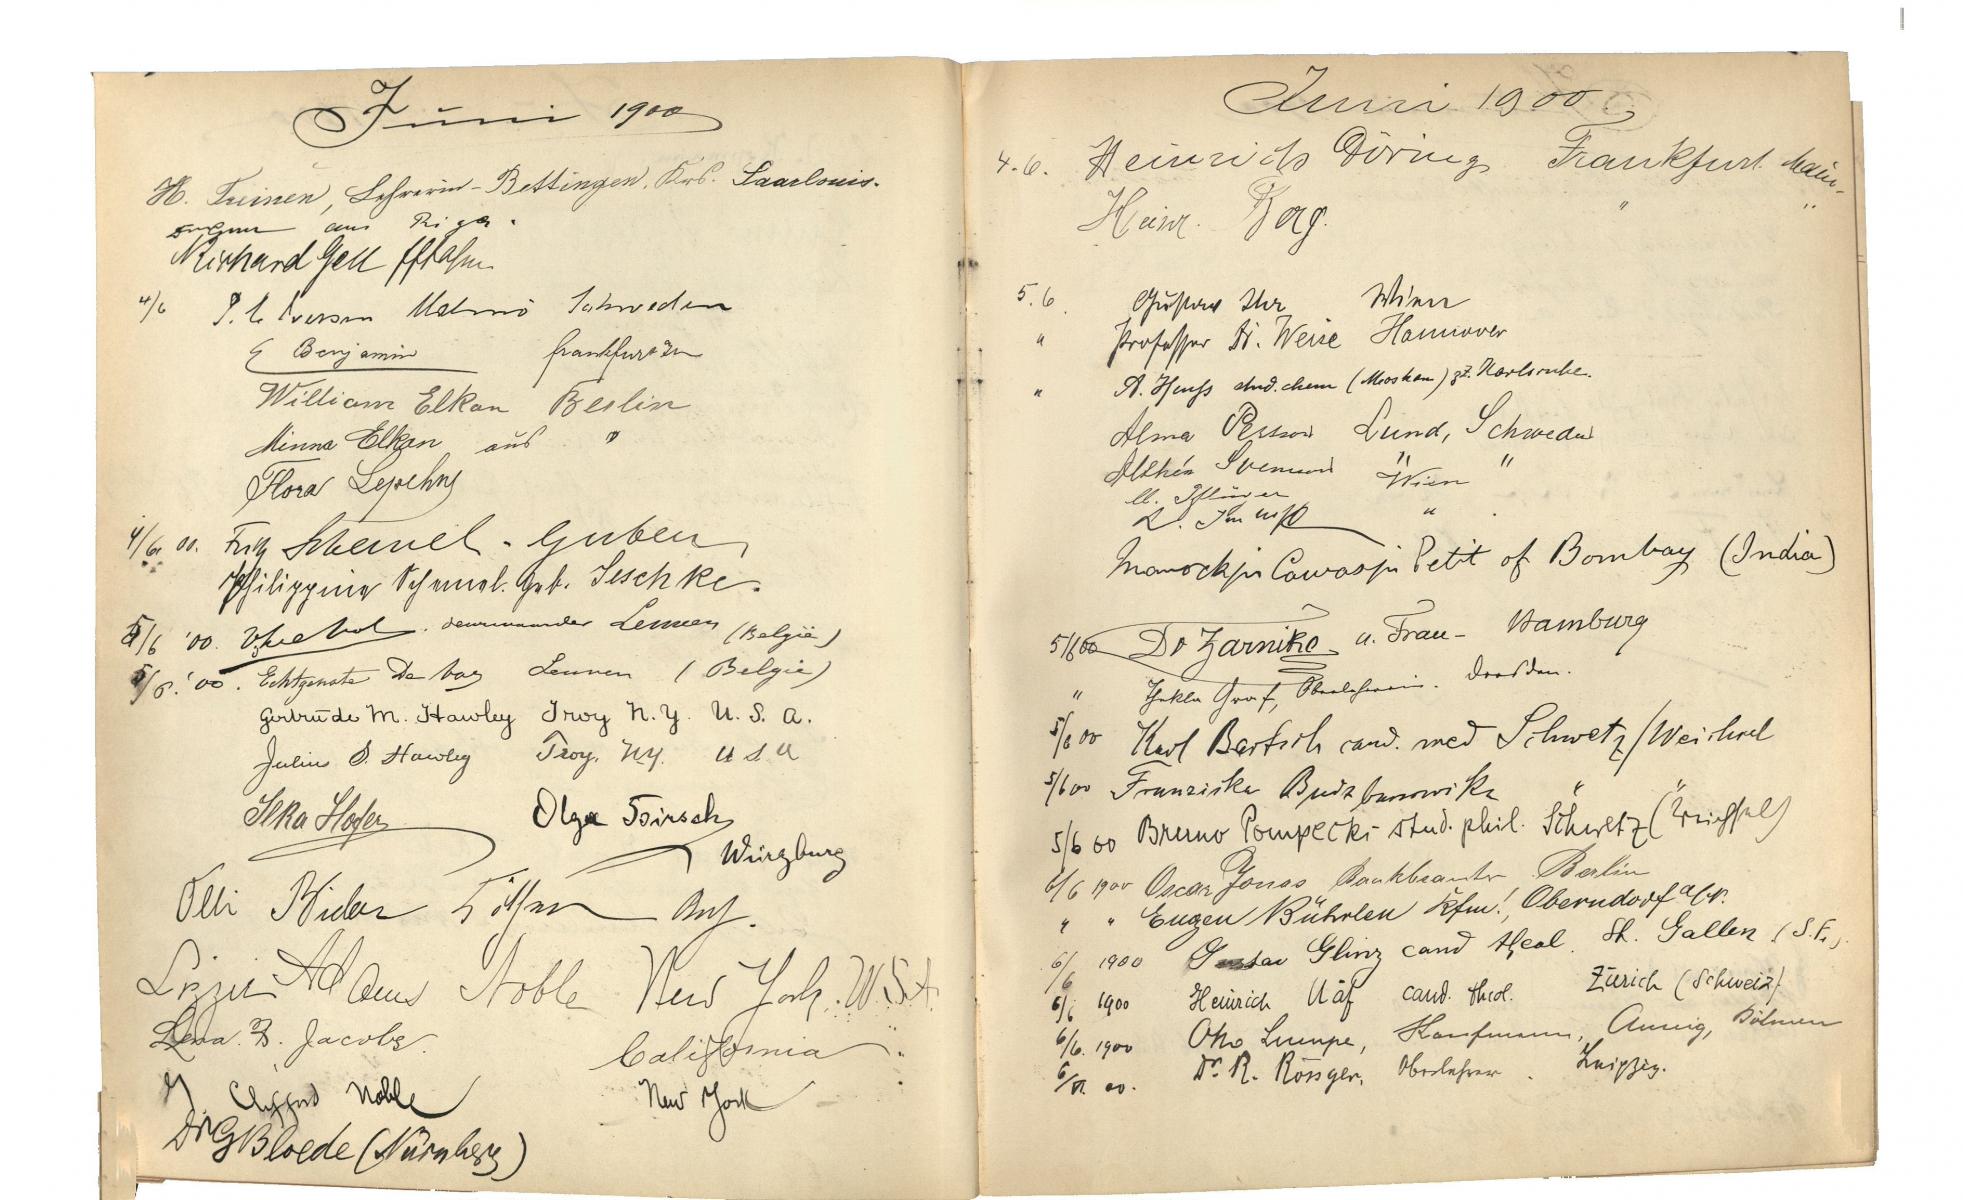 Juni 1900
H. Tuinen, Lehrerin - Bettingen, Krs. Saarlouis.
aus Riga.
Richard Gell
4/6 P. L. Iversen Malmö Schweden
E Benjamin Frankfurt
William Elkan Berlin
Minna Elkan aus "
Flora Lepehny
4/6. 00. Fritz Schemel - Guben
Philippine Schemel. geb. Jeschke.
5/6 '00. Lennen (België)
5/6. '00. Echtgenote De Lennen (België)
Gertrude M. Hawley Troy N.Y. U.S.A.
Julius S. Hawley Troy, N.Y. U S A
Ilka Olga Hirsch
Würzburg
Lizzie Adams Noble New York. U.S.A.
Lena B. Jacobs. California
G Clifford Noble New York
Dr G Bloede (Nürnberg)
Juni 1900
4.6. Heinrich Döring Frankfurt Main
Heinr. Berg. " "
5.6 Gustav Wien
" Professor Dr. Weise Hannover
" A. stud. chem (Moskau) gz. Karlsruhe.
Alma Persson Lund, Schweden
Svensson " "
Wien
"
Manockji Cawasji Petit of Bombay (India)
5/6 00 Dr Zarniko u. Frau - Hamburg
" Thekla Graf, Oberlehrerin. Dresden.
5/6 00 Karl Bartsch cand. med Schwetz/Weichsel
5/6 00 Franziska " "
5/6 00 Bruno Pompecki stud. phil. Schwetz (Weichsel)
6/6 1900 Oscar Jonas Bankbeamter Berlin
" " Eugen Bührlen Kfm!, Oberndorf a/N.
6/6 1900 Gustav Glinz cand theol. St. Gallen
6/6 1900 Heinrich Näf cand. theol. Zürich (Schweiz)
6/6. 1900 Otto Lumpe, Kaufmann, Aussig, Böhmen
6/VI. 00. Dr. R. Rössger, Oberlehrer. Leipzig.